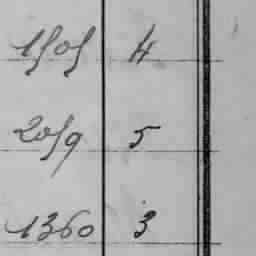 1505 4
2059 5
1360 3